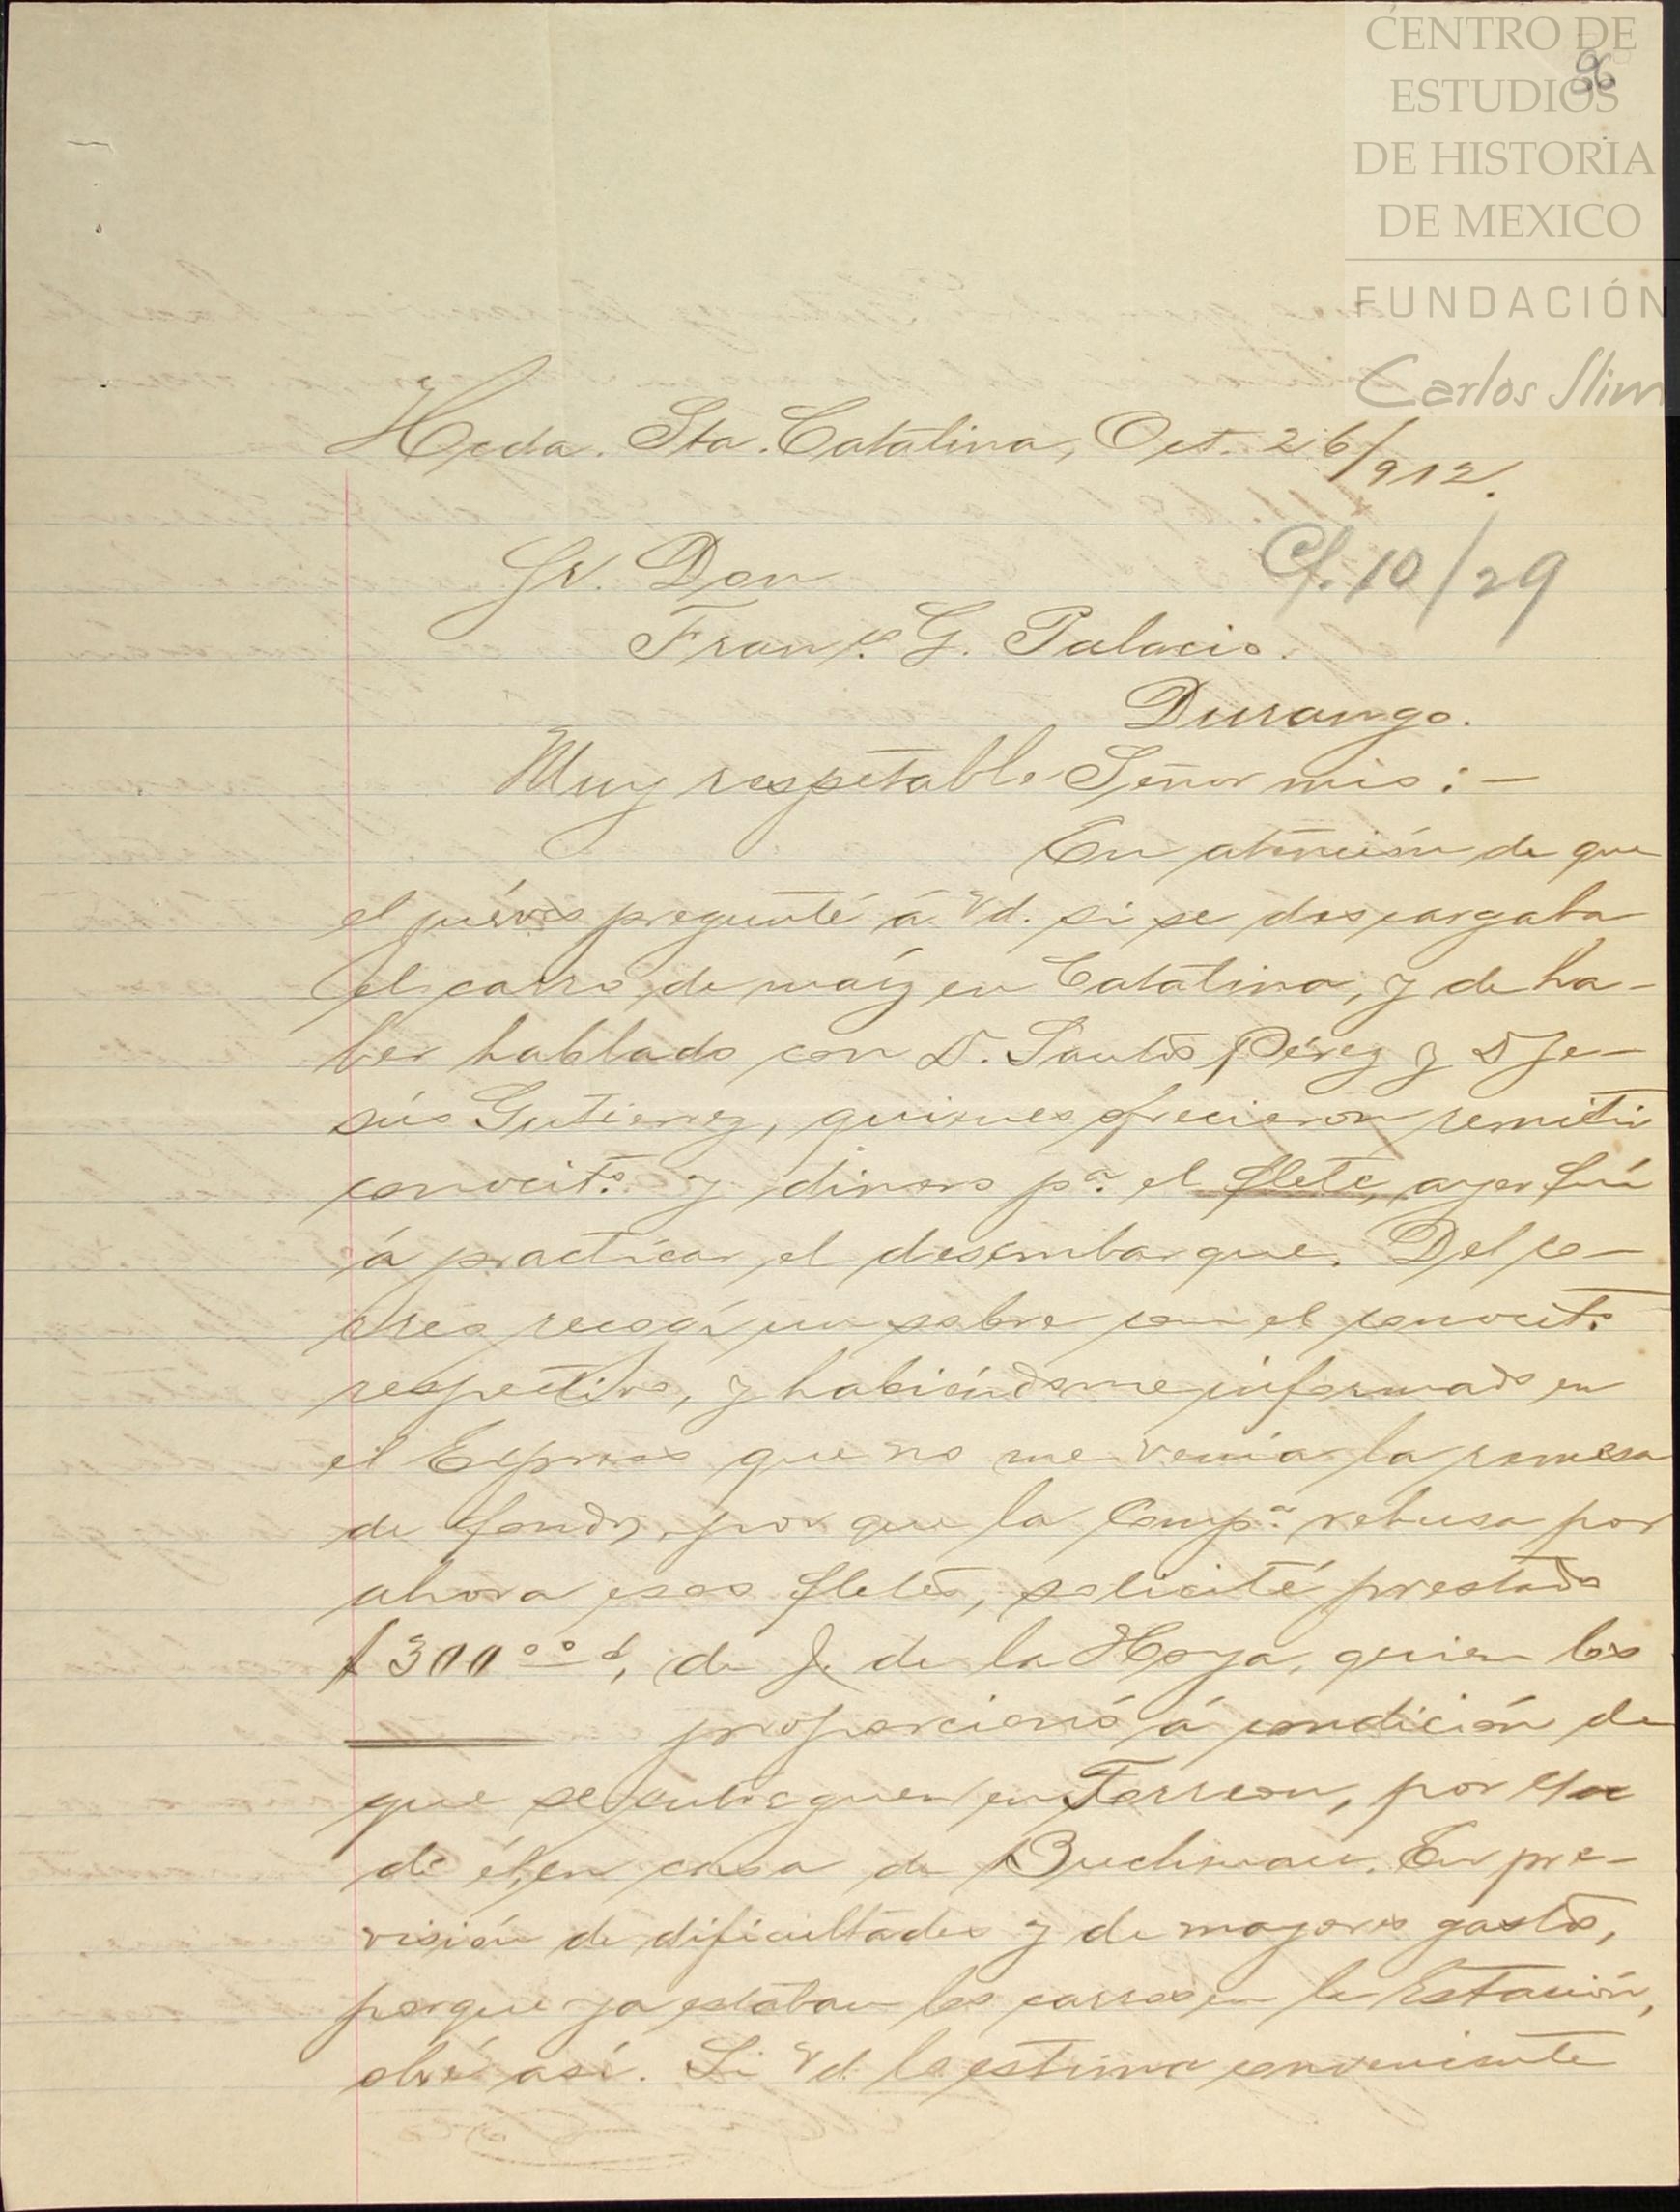 CENTRO DE
ESTUDIOS
DE HISTORIA
DE MEXICO
FUNDACIÓN
Carlos Slim
96
Hcda. Sta. Catalina, Oct. 26/912.
Cf. 10/29
Sr. Don
Franco. G. Palacio.
Durango.
Muy respetable Señor mio: —
En atención de que
el juéves pregunté á Vd. si se descargaba
el carro de maíz en Catalina, y de ha-
ber hablado con D. Santos Pérez y D Je-
sús Gutierrez, quienes ofrecieron remitir
conocito. y dinero pa. el flete, ayer fuí
á practicar el desembarque. Del co-
rreo recogí un sobre con el conocito.
respectivo, y habiéndome informado en
el Express que no me venía la remesa
de fondos, por que la Compa. rehusa por
ahora esos fletes, solicité prestado
$300 oo, de J. de la Hoya, quien los
proporcionó á condición de
que se entreguen en Torreon, por cta
de él, en casa de Buchenau. En pre-
visión de dificultades y de mayores gastos,
porque ya estaban los carros en la Estación,
obré así. Si Vd. lo estima conveniente